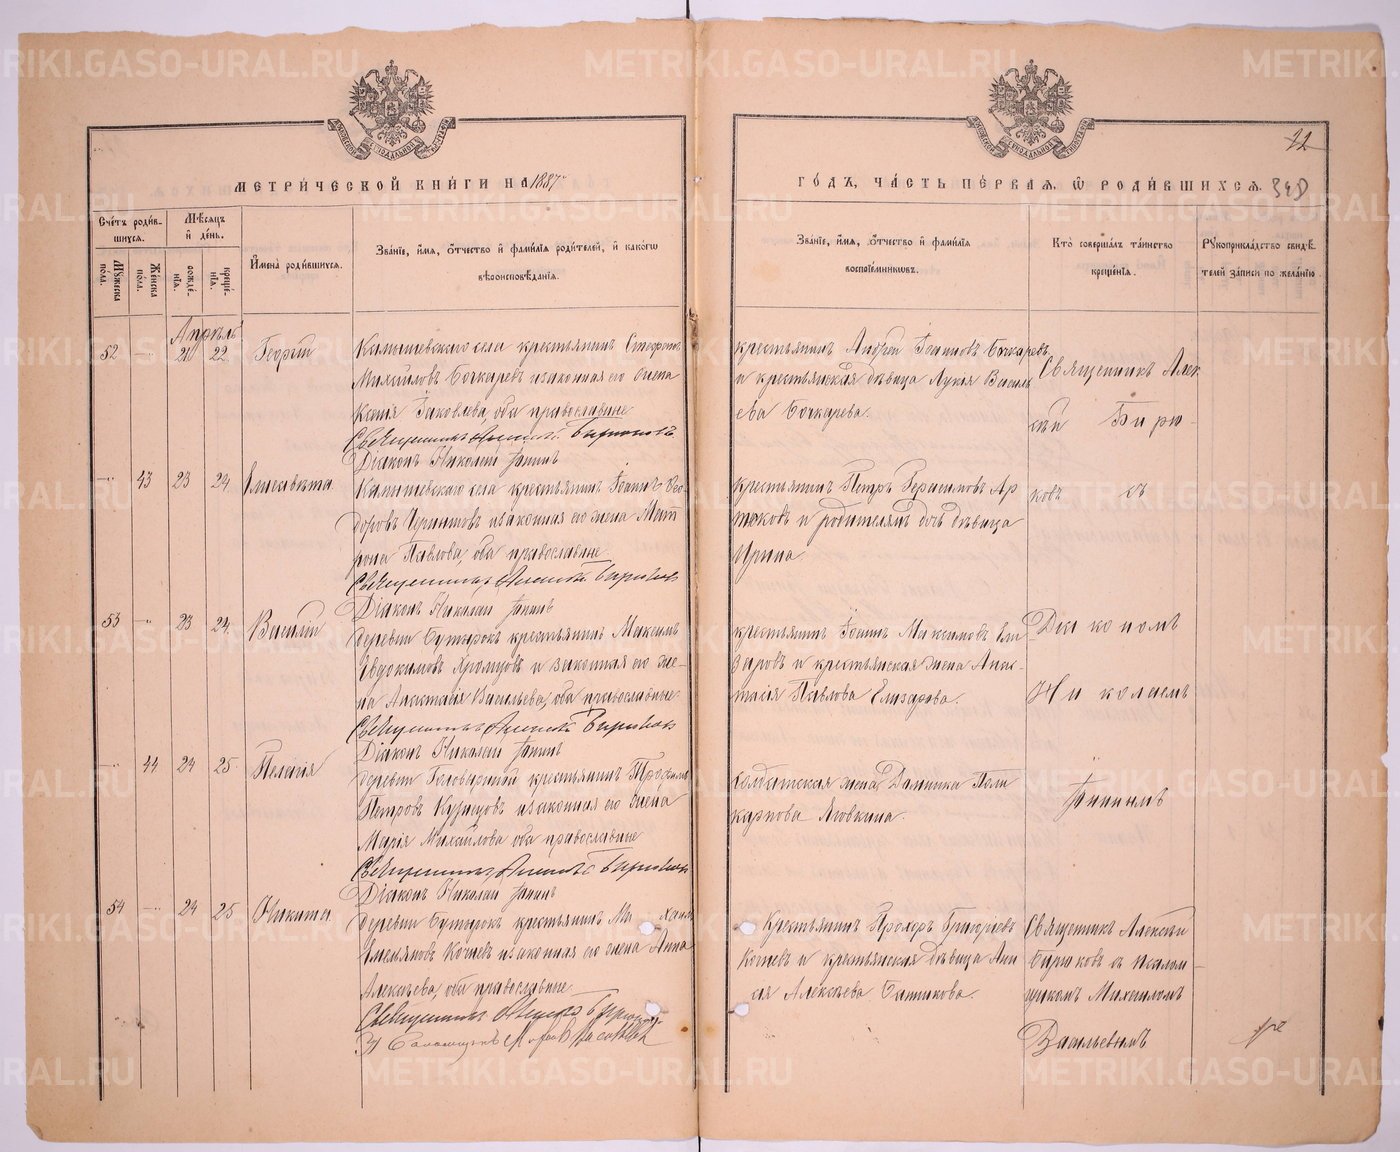 METRIKI.GASO-URAL.RU
МЕТРИ́ЧЕСКОЙ КНИ́ГИ НА 1887
ГО́ДЪ, ЧА́СТЬ ПЕ́РВАЯ, Ѡ РОДИ́ВШИХСЯ. 348
22
Сче́тъ роди́в-
шихся.
Мѣ́сяцъ
и́ де́нь.
И́мена̀ роди́вшихся.
Зва́нїе, и́мя, о́тчество и́ фами́лїя роди́телей, и́ како́гѡ
вѣроисповѣ́данїя.
Зва́нїе, и́мя, о́тчество и́ фами́лїя
воспрїе́мниковъ.
Кто̀ соверша́лъ та́инство
креще́нїя.
Рꙋкоприкла́дство свидѣ́-
телей за́писи по жела́нїю
Мꙋжеска
по́ла.
Же́нска
по́ла.
рожде́-
нїя.
креще́-
нїя.
Апрѣль
52 21 22 Георгій
Камышевскаго села крестьянинъ Стефанъ
Михайловъ Бочкаревъ и законная его жена
Ксенія Іаковлева, оба православные
Священникъ Алексѣй Бирюковъ
Діаконъ Николай
крестьянинъ Андрей Іоанновъ Бочкаревъ
и крестьянская дѣвица Лукія Василь
ева Бочкарева.
Священникъ Алек
сѣй Бирю-
43 23 24 Елисавета
Камышевскаго села крестьянинъ Іоаннъ Ѳео-
доровъ и законная его жена Мат
рона Павлова, оба православные
Священникъ Алексѣй Бирюковъ
Діаконъ Николай
крестьянинъ Петръ Герасимовъ
и родителямъ дочь дѣвица
Ирина
ковъ съ
53 23 24 Василій
деревни Бутырокъ крестьянинъ Максимъ
Евдокимовъ и законная его же-
на Анастасія Васильева, оба православные
Священникъ Алексѣй Бирюковъ
Діаконъ Николай
крестьянинъ Іоаннъ Максимовъ Ели
заровъ и крестьянская жена Анас-
тасія Павлова Елизарова.
Діакономъ
Николаемъ
44 24 25 Пелагія
деревни крестьянинъ Трофимъ
Петровъ и законная его жена
Марія Михайлова оба православные
Священникъ Алексѣй Бирюковъ
Діаконъ Николай
солдатская жена Домника Поли
карпова
54 24 25 Никита
деревни Бутырокъ крестьянинъ Михаилъ
Емельяновъ Кочневъ и законная его жена Анна
Алексѣева, оба православные
Священникъ Алексѣй Бирюковъ
Крестьянинъ Прохоръ Григорьевъ
Кочневъ и крестьянская дѣвица Ани
сія Алексѣева
Священникъ Алексѣй
Бирюковъ съ псалом-
щикомъ Михаиломъ
Васильевымъ